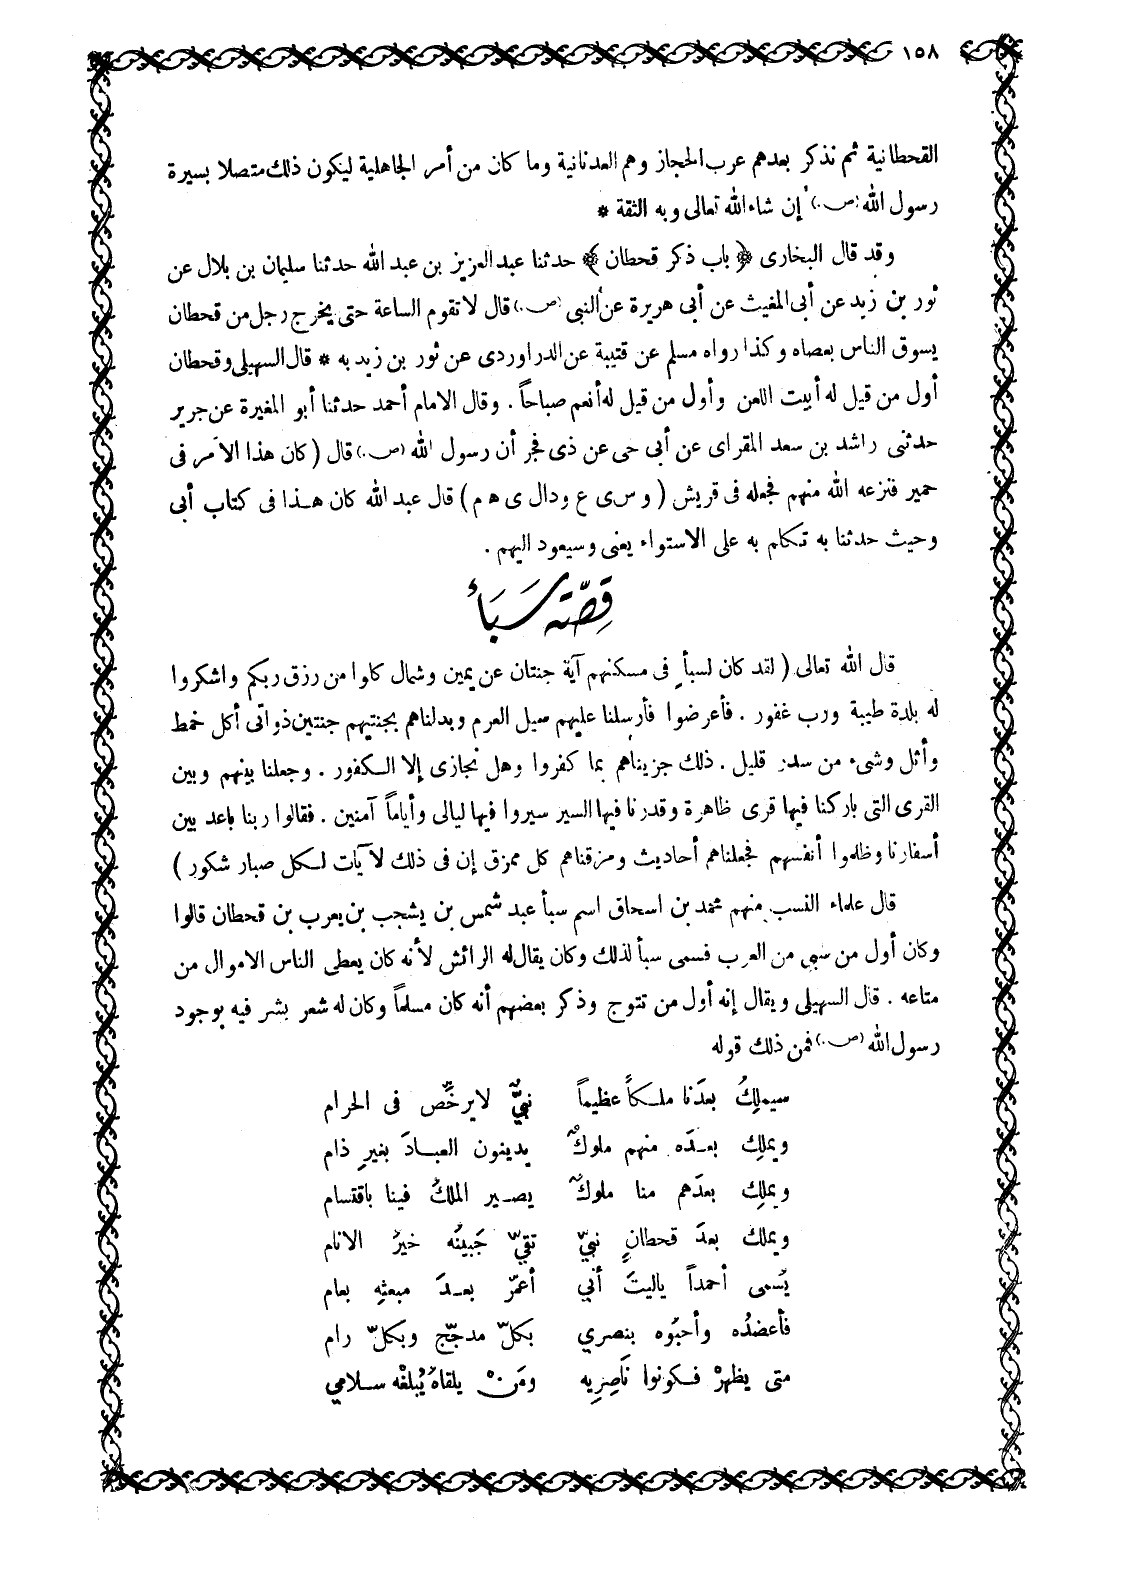 ١٥٨
القحطانية ثم نذكر بعدهم عرب الحجاز وهم العدنانية وما كان من أمر الجاهلية ليكون ذلك متصلا بسيرة
رسول الله (ص.) إن شاء الله تعالى وبه الثقة *
وقد قال البخارى ﴿ باب ذكر قحطان ﴾ حدثنا عبد العزيز بن عبد الله حدثنا سليمان بن بلال عن
ثور بن زيد عن أبى المغيث عن أبى هريرة عن النبى (ص.) قال لا تقوم الساعة حتى يخرج رجل من قحطان
يسوق الناس بعصاه وكذا رواه مسلم عن قتيبة عن الدراوردى عن ثور بن زيد به * قال السهيلى وقحطان
أول من قيل له أبيت اللعن وأول من قيل له أنعم صباحاً . وقال الامام أحمد حدثنا أبو المغيرة عن جرير
حدثنى راشد بن سعد المقراى عن أبى حى عن ذى فجر أن رسول الله (ص.) قال ( كان هذا الأمر فى
حمير فنزعه الله منهم فجعله فى قريش ( و س ى ع ود ال ى ه م ) قال عبد الله كان هـذا فى كتاب أبى
وحيث حدثنا به تكلم به على الاستواء يعنى وسيعود اليهم .
قِصّة سَبَأ
قال الله تعالى ( لقد كان لسبأٍ فى مسكنهم آية جنتان عن يمين وشمال كلوا من رزق ربكم واشكروا
له بلدة طيبة ورب غفور . فأعرضوا فأرسلنا عليهم سيل العرم وبدلناهم بجنتيهم جنتين ذواتى أكل خمط
وأثل وشىء من سدر قليل . ذلك جزيناهم بما كفروا وهل نجازى إلا الـكفور . وجعلنا بينهم وبين
القرى التى باركنا فيها قرى ظاهرة وقدرنا فيها السير سيروا فيها ليالى وأياماً آمنين . فقالوا ربنا باعد بين
أسفارنا وظلموا أنفسهم فجعلناهم أحاديث ومزقناهم كل ممزق إن فى ذلك لآيات لـكل صبار شكور )
قال علماء النسب منهم محمد بن اسحاق اسم سبأ عبد شمس بن يشجب بن يعرب بن قحطان قالوا
وكان أول من سبى من العرب فسمى سبأ لذلك وكان يقال له الرائش لأنه كان يعطى الناس الاموال من
متاعه . قال السهيلى ويقال إنه أول من تتوج وذكر بعضهم أنه كان مسلماً وكان له شعر بشر فيه بوجود
رسول الله (ص.) فمن ذلك قوله
سيملِكُ بعدَنا ملـكاً عظيماً نبيٌّ لايرخّص فى الحرام
ويملِك بعـدَه منهم ملوكٌ يدينون العبـادَ بغيرِ ذام
ويملِك بعدَهم منا ملوكٌ يصـير الملكُ فينا باقتسام
ويملك بعدَ قحطانٍ نبيّ تقيّ جَبينُه خيرُ الانام
يُسمى أحمداً ياليتَ أني أعمّر بعـدَ مبعثِهِ بعام
فأعضدُه وأحبُوه بنصري بكلّ مدجّج وبكلّ رام
متى يظهرْ فـكونوا نَاصِرِيه ومَن يلقاهُ يُبلغْه سـلامي